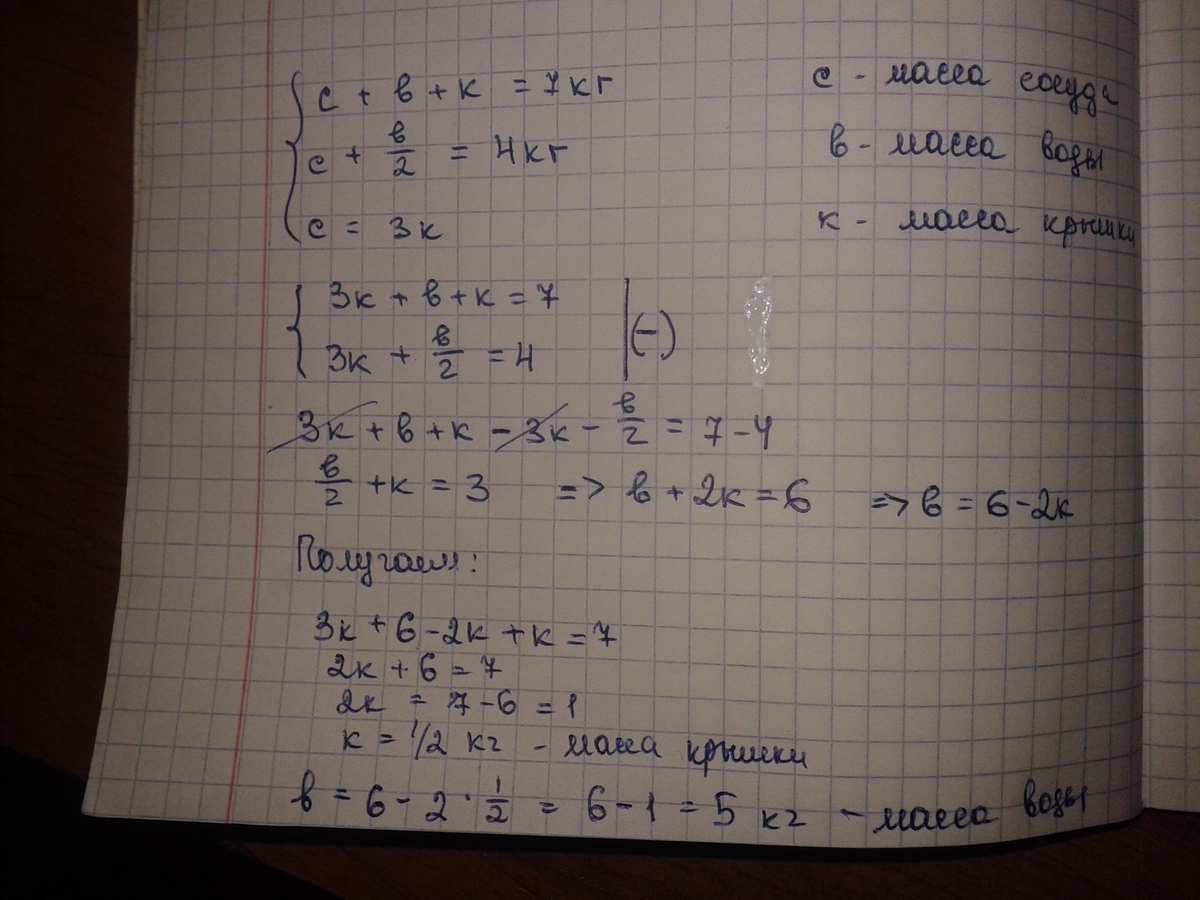 с + в + к = 7 кг
с - масса сосуда
с + в/2 = 4 кг
в - масса воды
с = 3к
к - масса крышки
3к + в + к = 7
3к + в/2 = 4 | (-)
3к + в + к - 3к - в/2 = 7 - 4
в/2 + к = 3 => в + 2к = 6 => в = 6 - 2к
Получаем:
3к + 6 - 2к + к = 7
2к + 6 = 7
2к = 7 - 6 = 1
к = 1/2 кг - масса крышки
в = 6 - 2 · 1/2 = 6 - 1 = 5 кг - масса воды